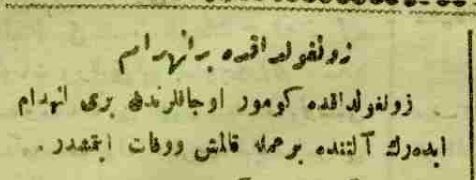 زونغولداقده بر انهدام
زونغولداقده كومور اوجاقلرندن برى انهدام
ايده‌رك آلتنده بر عمله قالمش ووفات ايتمشدر .